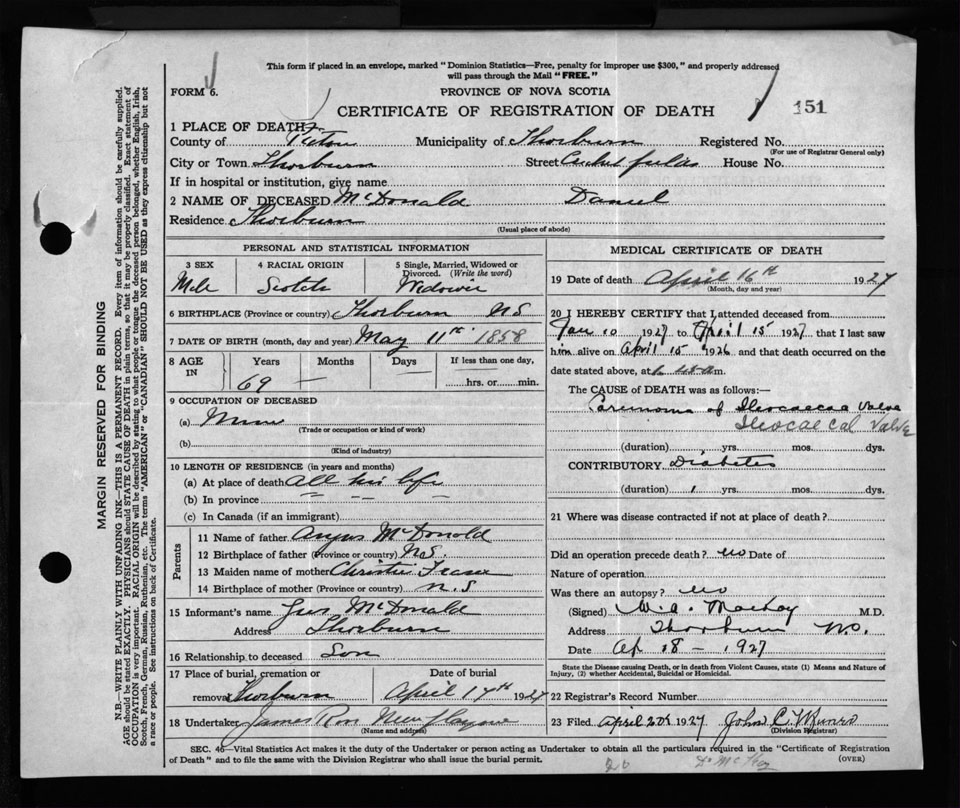 This form if placed in an envelope, marked "Dominion Statistics—Free, penalty for improper use $300," and properly addressed
will pass through the Mail "FREE."
FORM 6.
PROVINCE OF NOVA SCOTIA
CERTIFICATE OF REGISTRATION OF DEATH
151
1 PLACE OF DEATH
County of Pictou Municipality of Thorburn Registered No.
(For use of Registrar General only)
City or Town Thorburn Street Cricket fields House No.
If in hospital or institution, give name
2 NAME OF DECEASED McDonald Daniel
Residence Thorburn
(Usual place of abode)
PERSONAL AND STATISTICAL INFORMATION
3 SEX 4 RACIAL ORIGIN 5 Single, Married, Widowed or
Divorced. (Write the word)
Male Scotch Widower
6 BIRTHPLACE (Province or country) Thorburn NS
7 DATE OF BIRTH (month, day and year) May 11th 1858
8 AGE IN Years Months Days If less than one day,
69 — — hrs. or min.
9 OCCUPATION OF DECEASED
(a) Miner
(Trade or occupation or kind of work)
(b)
(Kind of industry)
10 LENGTH OF RESIDENCE (in years and months)
(a) At place of death All his life
(b) In province — — —
(c) In Canada (if an immigrant)
Parents
11 Name of father Angus McDonald
12 Birthplace of father (Province or country) N.S.
13 Maiden name of mother Christie Fraser
14 Birthplace of mother (Province or country) N.S
15 Informant's name McDonald
Address Thorburn
16 Relationship to deceased Son
17 Place of burial, cremation or Date of burial
removal Thorburn April 17th 1927
18 Undertaker James Ross New Glasgow
(Name and address)
MEDICAL CERTIFICATE OF DEATH
19 Date of death April 16th 1927
(Month, day and year)
20 I HEREBY CERTIFY that I attended deceased from
Jan 10 1927 to April 15 1927 that I last saw
him alive on April 15 1926 and that death occurred on the
date stated above, at m.
The CAUSE of DEATH was as follows:—
Carcinoma of Ileocaecae Valve
Ileocaecal Valve
(duration) yrs. mos. dys.
CONTRIBUTORY Diabetes
(duration) 1 yrs. mos. dys.
21 Where was disease contracted if not at place of death?
Did an operation precede death? no Date of
Nature of operation
Was there an autopsy? no
(Signed) W.A. MacKay M.D.
Address Thorburn N.S.
Date Ap 18 – 1927
State the Disease causing Death, or in death from Violent Causes, state (1) Means and Nature of
Injury, (2) whether Accidental, Suicidal or Homicidal.
22 Registrar's Record Number
23 Filed April 20th 1927 John C. Munro
(Division Registrar)
SEC. 46—Vital Statistics Act makes it the duty of the Undertaker or person acting as Undertaker to obtain all the particulars required in the "Certificate of Registration
of Death" and to file the same with the Division Registrar who shall issue the burial permit.
(OVER)
MARGIN RESERVED FOR BINDING
N.B.—WRITE PLAINLY, WITH UNFADING INK—THIS IS A PERMANENT RECORD. Every item of information should be carefully supplied.
AGE should be stated EXACTLY. PHYSICIANS should STATE CAUSE OF DEATH in plain terms, so that it may be properly classified. Exact statement of
OCCUPATION is very important. RACIAL ORIGIN will be described by stating to what people or tongue the deceased person belonged, whether English, Irish,
Scotch, French, German, Russian, Ruthenian, etc. The terms "AMERICAN" or "CANADIAN" SHOULD NOT BE USED as they express citizenship but not
a race or people. See instructions on back of Certificate.